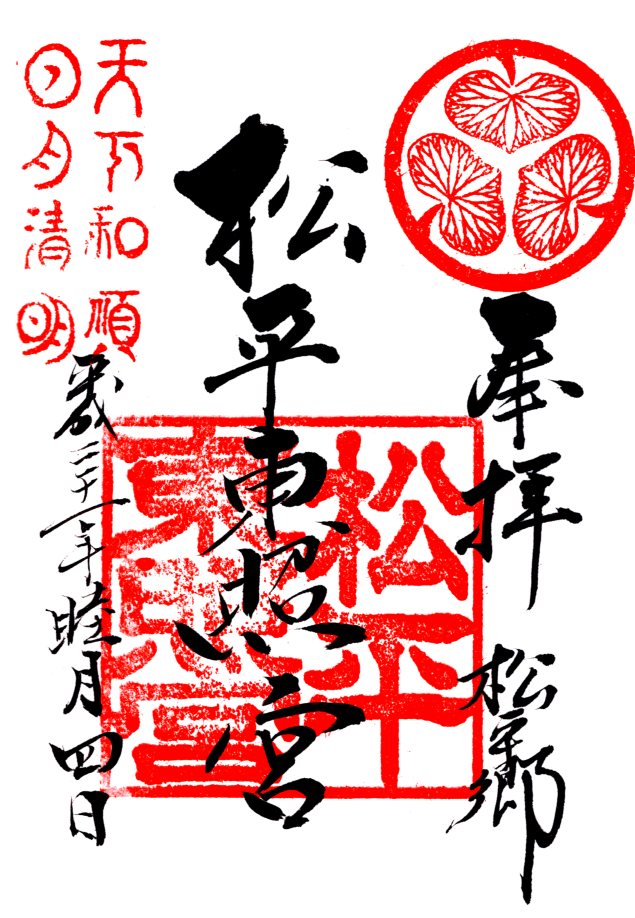 奉拝 松平郷
松平東照宮
松平
東照宮
天下和順
日月清明
歳二十一年睦月四日